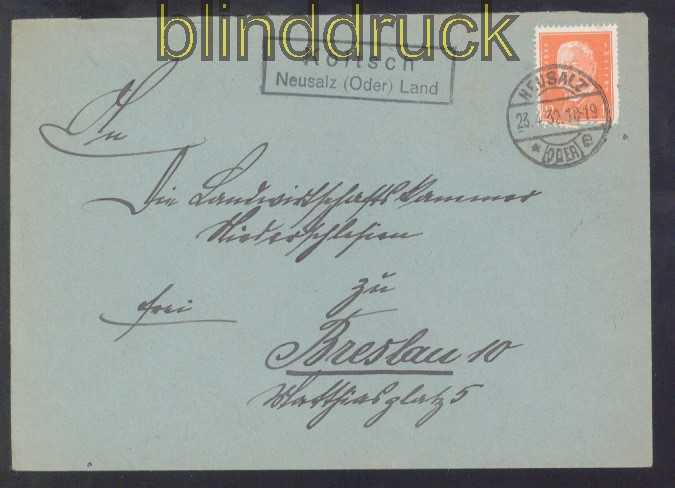 blinddruck
Költsch
Neusalz (Oder) Land
NEUSALZ
23. 32. 18-19
* (ODER) e
An
Die Landwirtschaftskammer
Niederschlesien
zu
frei
Breslau 10
Matthiasplatz 5